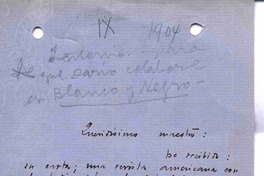 IX 1904
para
que Darío colabore
en Blanco y Negro-
Queridísimo maestro:
he recibido
su carta; una revista americana con